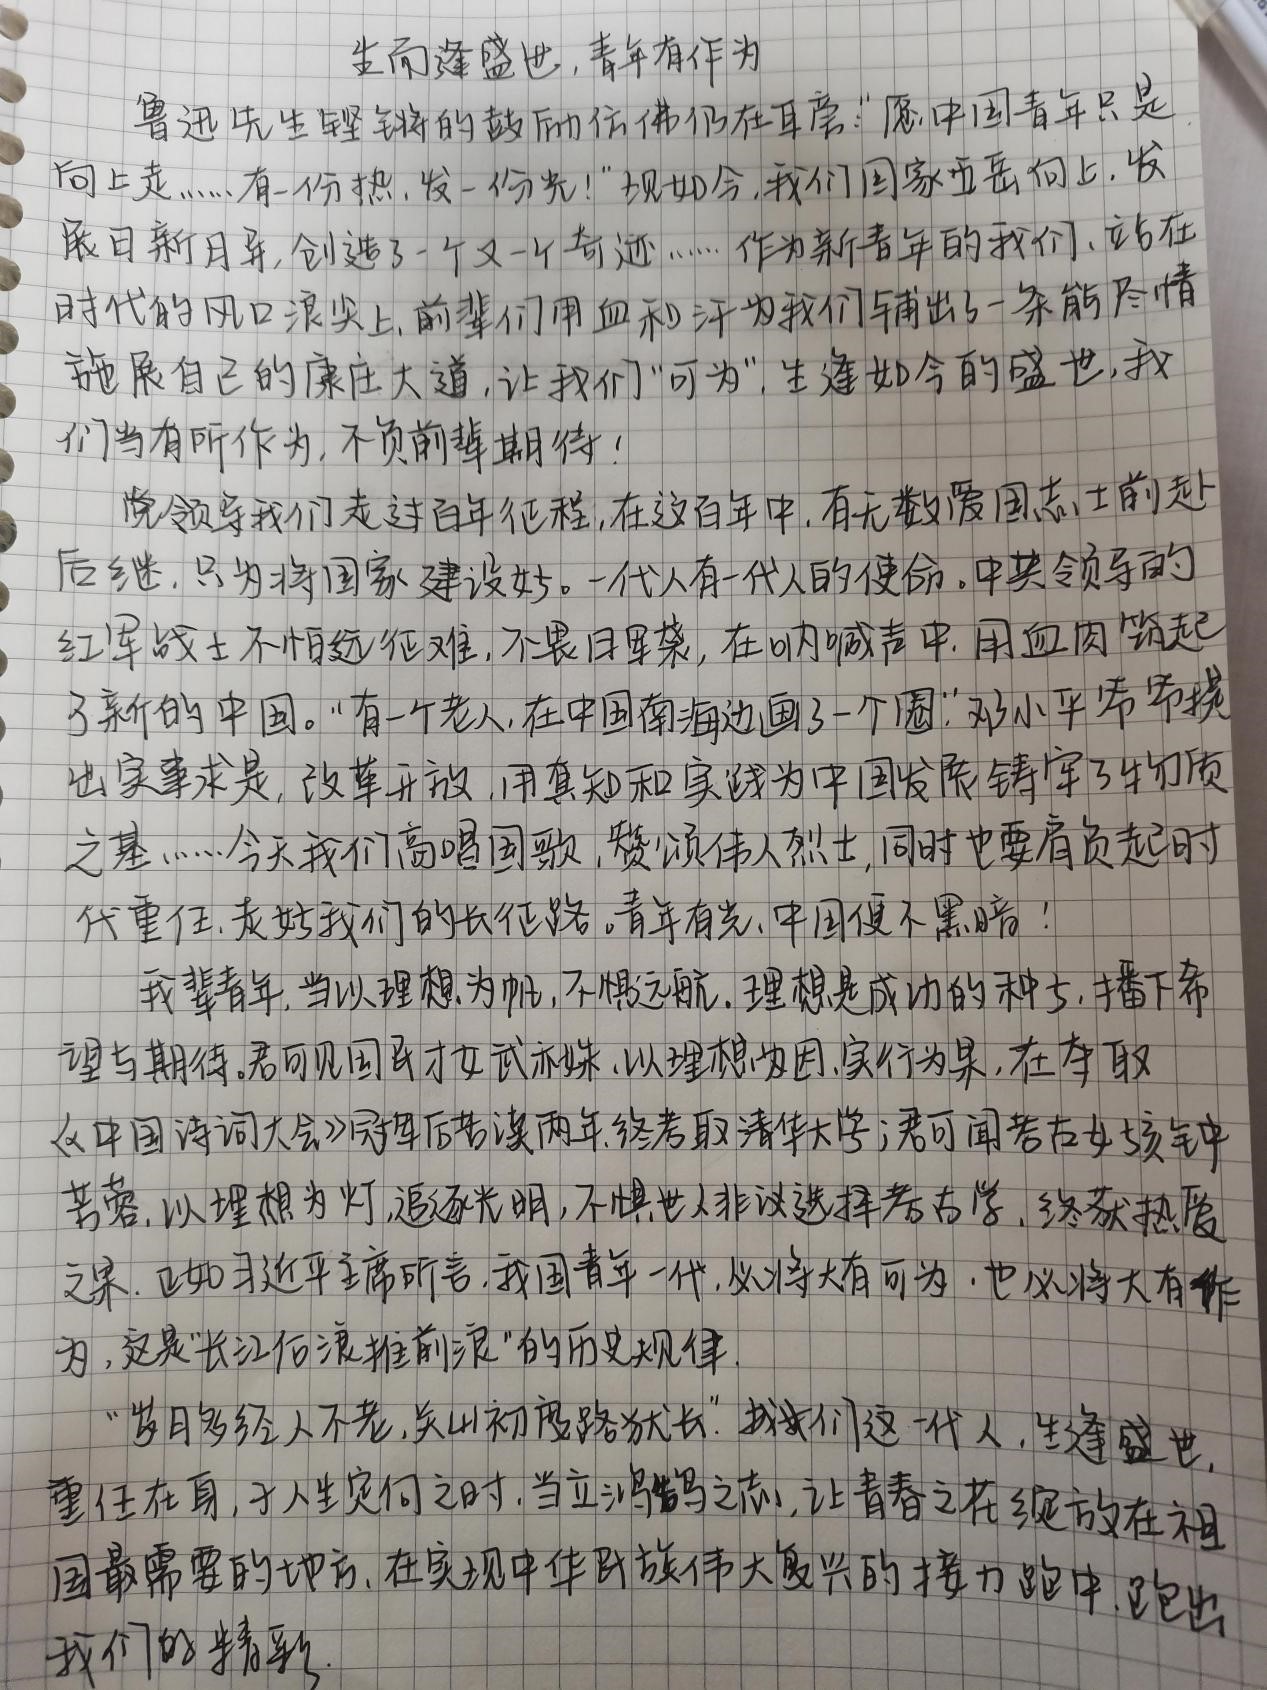 生而逢盛世，青年有作为
鲁迅先生铿锵的鼓励仿佛仍在耳旁："愿中国青年只是
向上走……有一份热，发一份光！"现如今，我们国家蒸蒸向上，发
展日新月异，创造了一个又一个奇迹……作为新青年的我们，站在
时代的风口浪尖上，前辈们用血和汗为我们铺出了一条能尽情
施展自己的康庄大道，让我们"可为"，生逢如今的盛世，我
们当有所作为，不负前辈期待！
党领导我们走过百年征程，在这百年中，有无数爱国志士前赴
后继，只为将国家建设好。一代人有一代人的使命。中共领导的
红军战士不怕远征难，不畏日军袭，在呐喊声中，用血肉筑起
了新的中国。"有一个老人，在中国南海边画了一个圈"，邓小平爷爷提
出实事求是，改革开放，用真知和实践为中国发展铸牢了物质
之基……今天我们高唱国歌，赞颂伟人烈士，同时也要肩负起时
代重任，走好我们的长征路。青年有光，中国便不黑暗！
我辈青年，当以理想为帆，不惧远航。理想是成功的种子，播下希
望与期待。君可见国民才女武亦姝，以理想为因，实行为果，在夺取
《中国诗词大会》冠军后苦读两年，终考取清华大学；君可闻考古女孩钟
芳蓉，以理想为灯，追逐光明，不惧世人非议选择考古学，终获热爱
之果。正如习近平主席所言，我国青年一代，必将大有可为，也必将大有作
为，这是"长江后浪推前浪"的历史规律。
"岁月多经人不老，关山初度路犹长"。我们这一代人，生逢盛世，
重任在身，于人生定向之时，当立鸿鹄之志，让青春之花绽放在祖
国最需要的地方，在实现中华民族伟大复兴的接力跑中，跑出
我们的精彩。